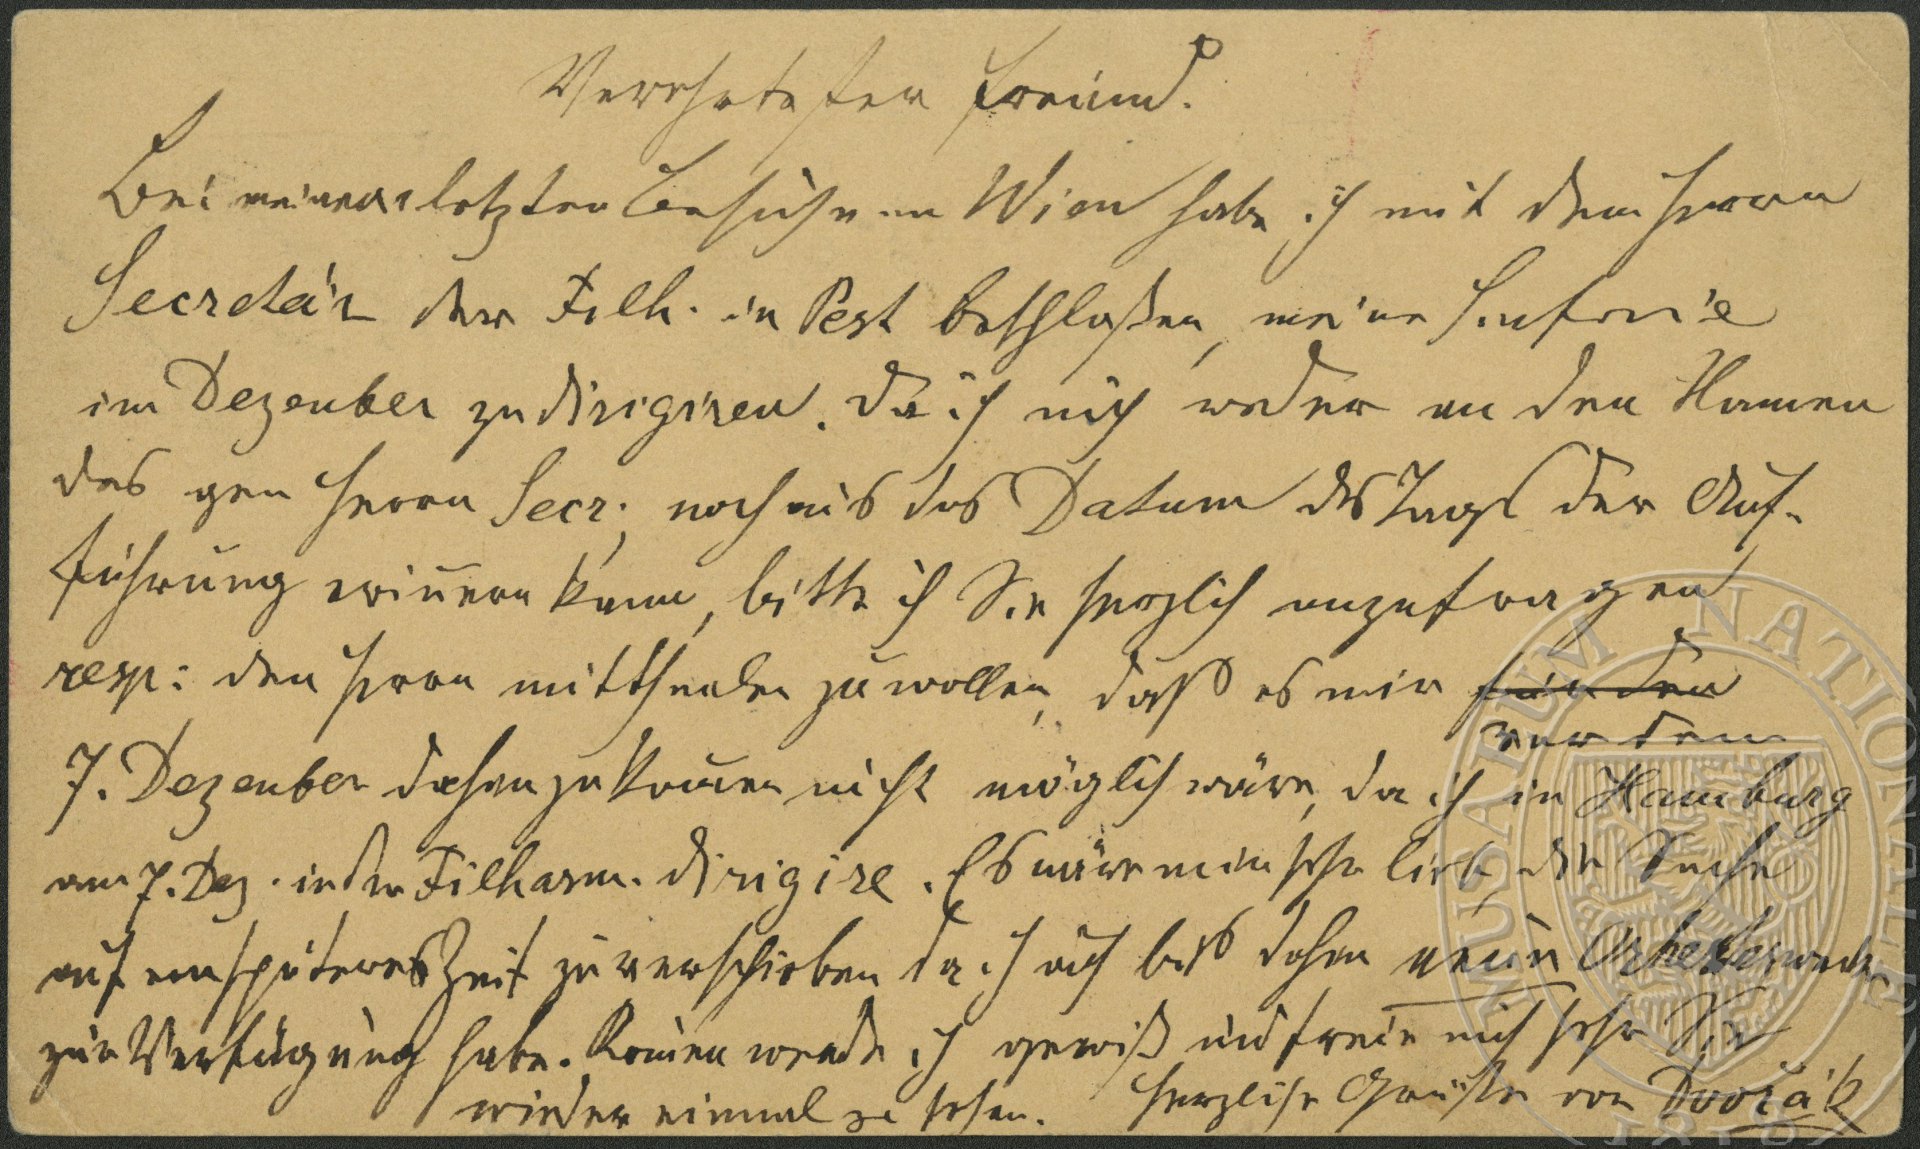 Verehrtester Freund.
Bei meinem letzten Besuche in Wien habe ich mit dem Herrn
Secretär der Filh. in Pest beschloßen, meine Sinfonie
im Dezember zu dirigiren. Da ich mich weder an den Namen
des gen Herrn Secr; noch an das Datum des Tags der Auf-
führung erinnern kann, bitte ich Sie herzlich anzufragen
resp: den Herrn mittheilen zu wollen, daß es mir für den
vor dem
7. Dezember dahin zu kommen nicht möglich wäre, da ich in Hamburg
am 7. Dez. in der Filharm. dirigire. Es wäre mir sehr lieb, die Sache
auf eine spätere Zeit zu verschieben da ich auch bis dahin neue Orchesterwerke
zur Verfügung habe. Komen werde ich gewiß und freue mich sehr Sie
wieder einmal zu sehen. Herzliche Grüße von Dvořák
MUSAEUM NATIONALE
1818